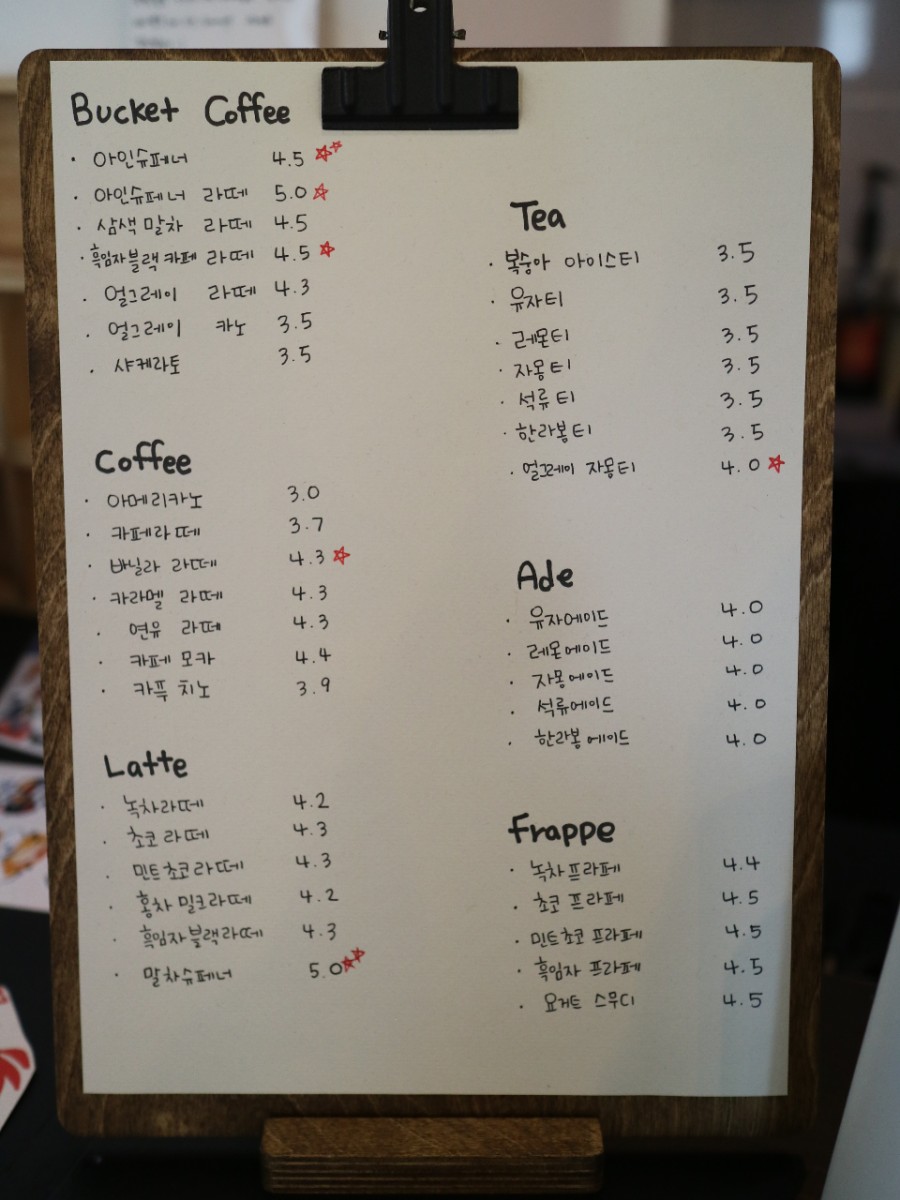 Bucket Coffee
· 아인슈페너 4.5
· 아인슈페너 라떼 5.0
· 삼색말차 라떼 4.5
· 흑임자블랙카페 라떼 4.5
· 얼그레이 라떼 4.3
· 얼그레이 카노 3.5
· 샤케라토 3.5
Coffee
· 아메리카노 3.0
· 카페라떼 3.7
· 바닐라 라떼 4.3
· 카라멜 라떼 4.3
· 연유 라떼 4.3
· 카페 모카 4.4
· 카푸치노 3.9
Latte
· 녹차라떼 4.2
· 초코라떼 4.3
· 민트초코라떼 4.3
· 홍차밀크라떼 4.2
· 흑임자블랙라떼 4.3
· 말차슈페너 5.0
Tea
· 복숭아 아이스티 3.5
· 유자티 3.5
· 레몬티 3.5
· 자몽티 3.5
· 석류티 3.5
· 한라봉티 3.5
· 얼그레이 자몽티 4.0
Ade
· 유자에이드 4.0
· 레몬에이드 4.0
· 자몽에이드 4.0
· 석류에이드 4.0
· 한라봉에이드 4.0
Frappe
· 녹차프라페 4.4
· 초코 프라페 4.5
· 민트초코 프라페 4.5
· 흑임자 프라페 4.5
· 요거트 스무디 4.5